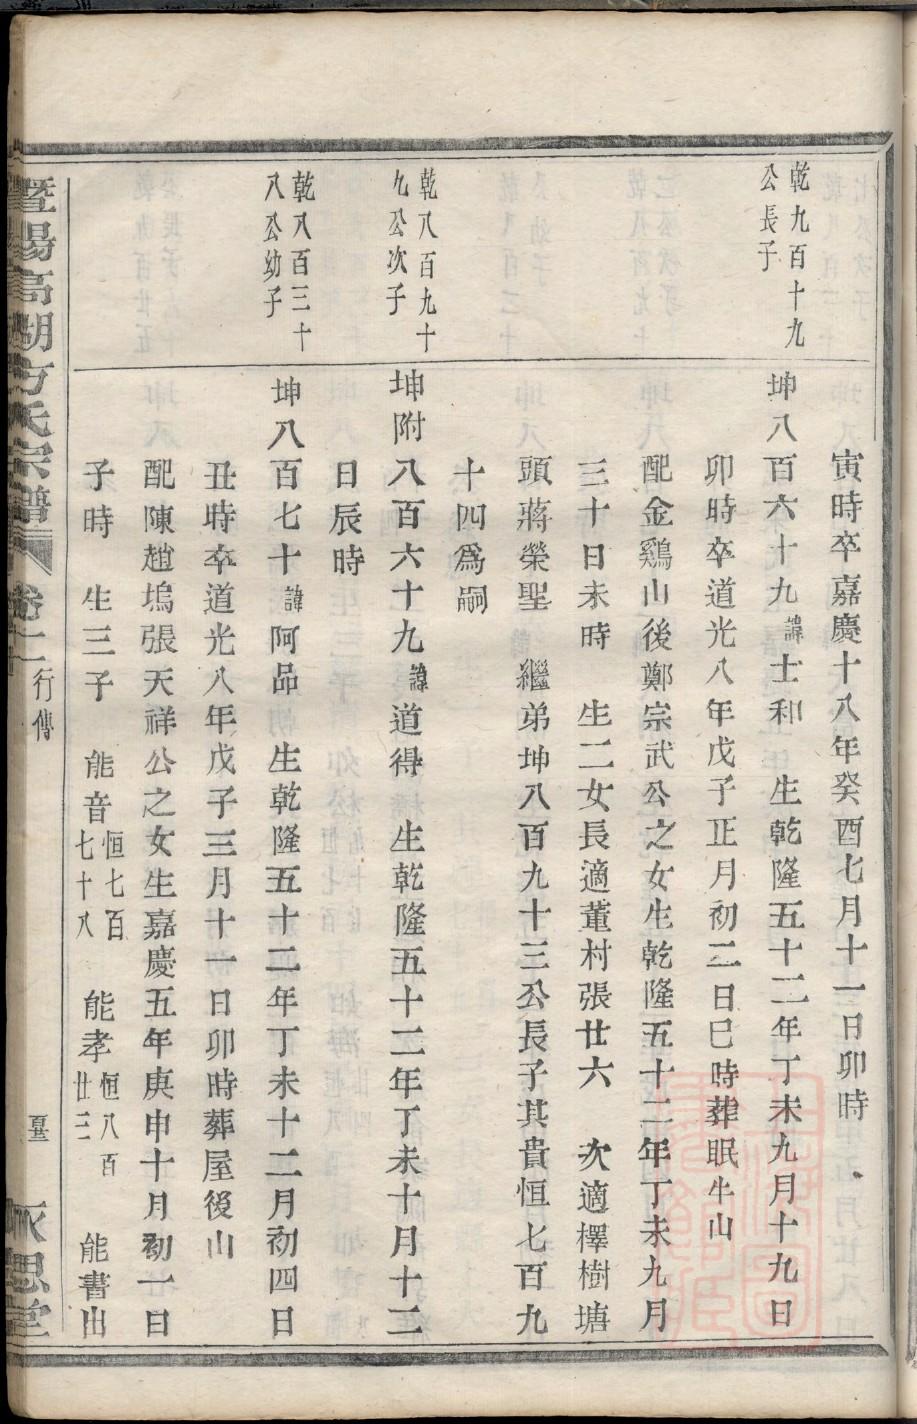 寅時卒嘉慶十八年癸酉七月十一日卯時
乾九百十九
公長子
坤八百六十九諱士和 生乾隆五十二年丁未九月十九日
卯時卒道光八年戊子正月初二日巳時葬眠牛山
配金鷄山後鄭宗武公之女生乾隆五十二年丁未九月
三十日未時 生二女長適董村張廿六 次適檡樹塘
頭蔣榮聖 繼弟坤八百九十三公長子其貴恒七百九
十四爲嗣
乾八百九十
九公次子
坤附八百六十九諱道得 生乾隆五十二年丁未十月十二
日辰時
乾八百三十
八公幼子
坤八百七十諱阿品 生乾隆五十二年丁未十二月初四日
丑時卒道光八年戊子三月十一日卯時葬屋後山
配陳趙塢張天祥公之女生嘉慶五年庚申十月初一日
子時 生三子 能音恒七百七十八 能孝恒八百廿三 能書出
暨陽高湖方氏宗譜 卷十一 行傳 永思堂